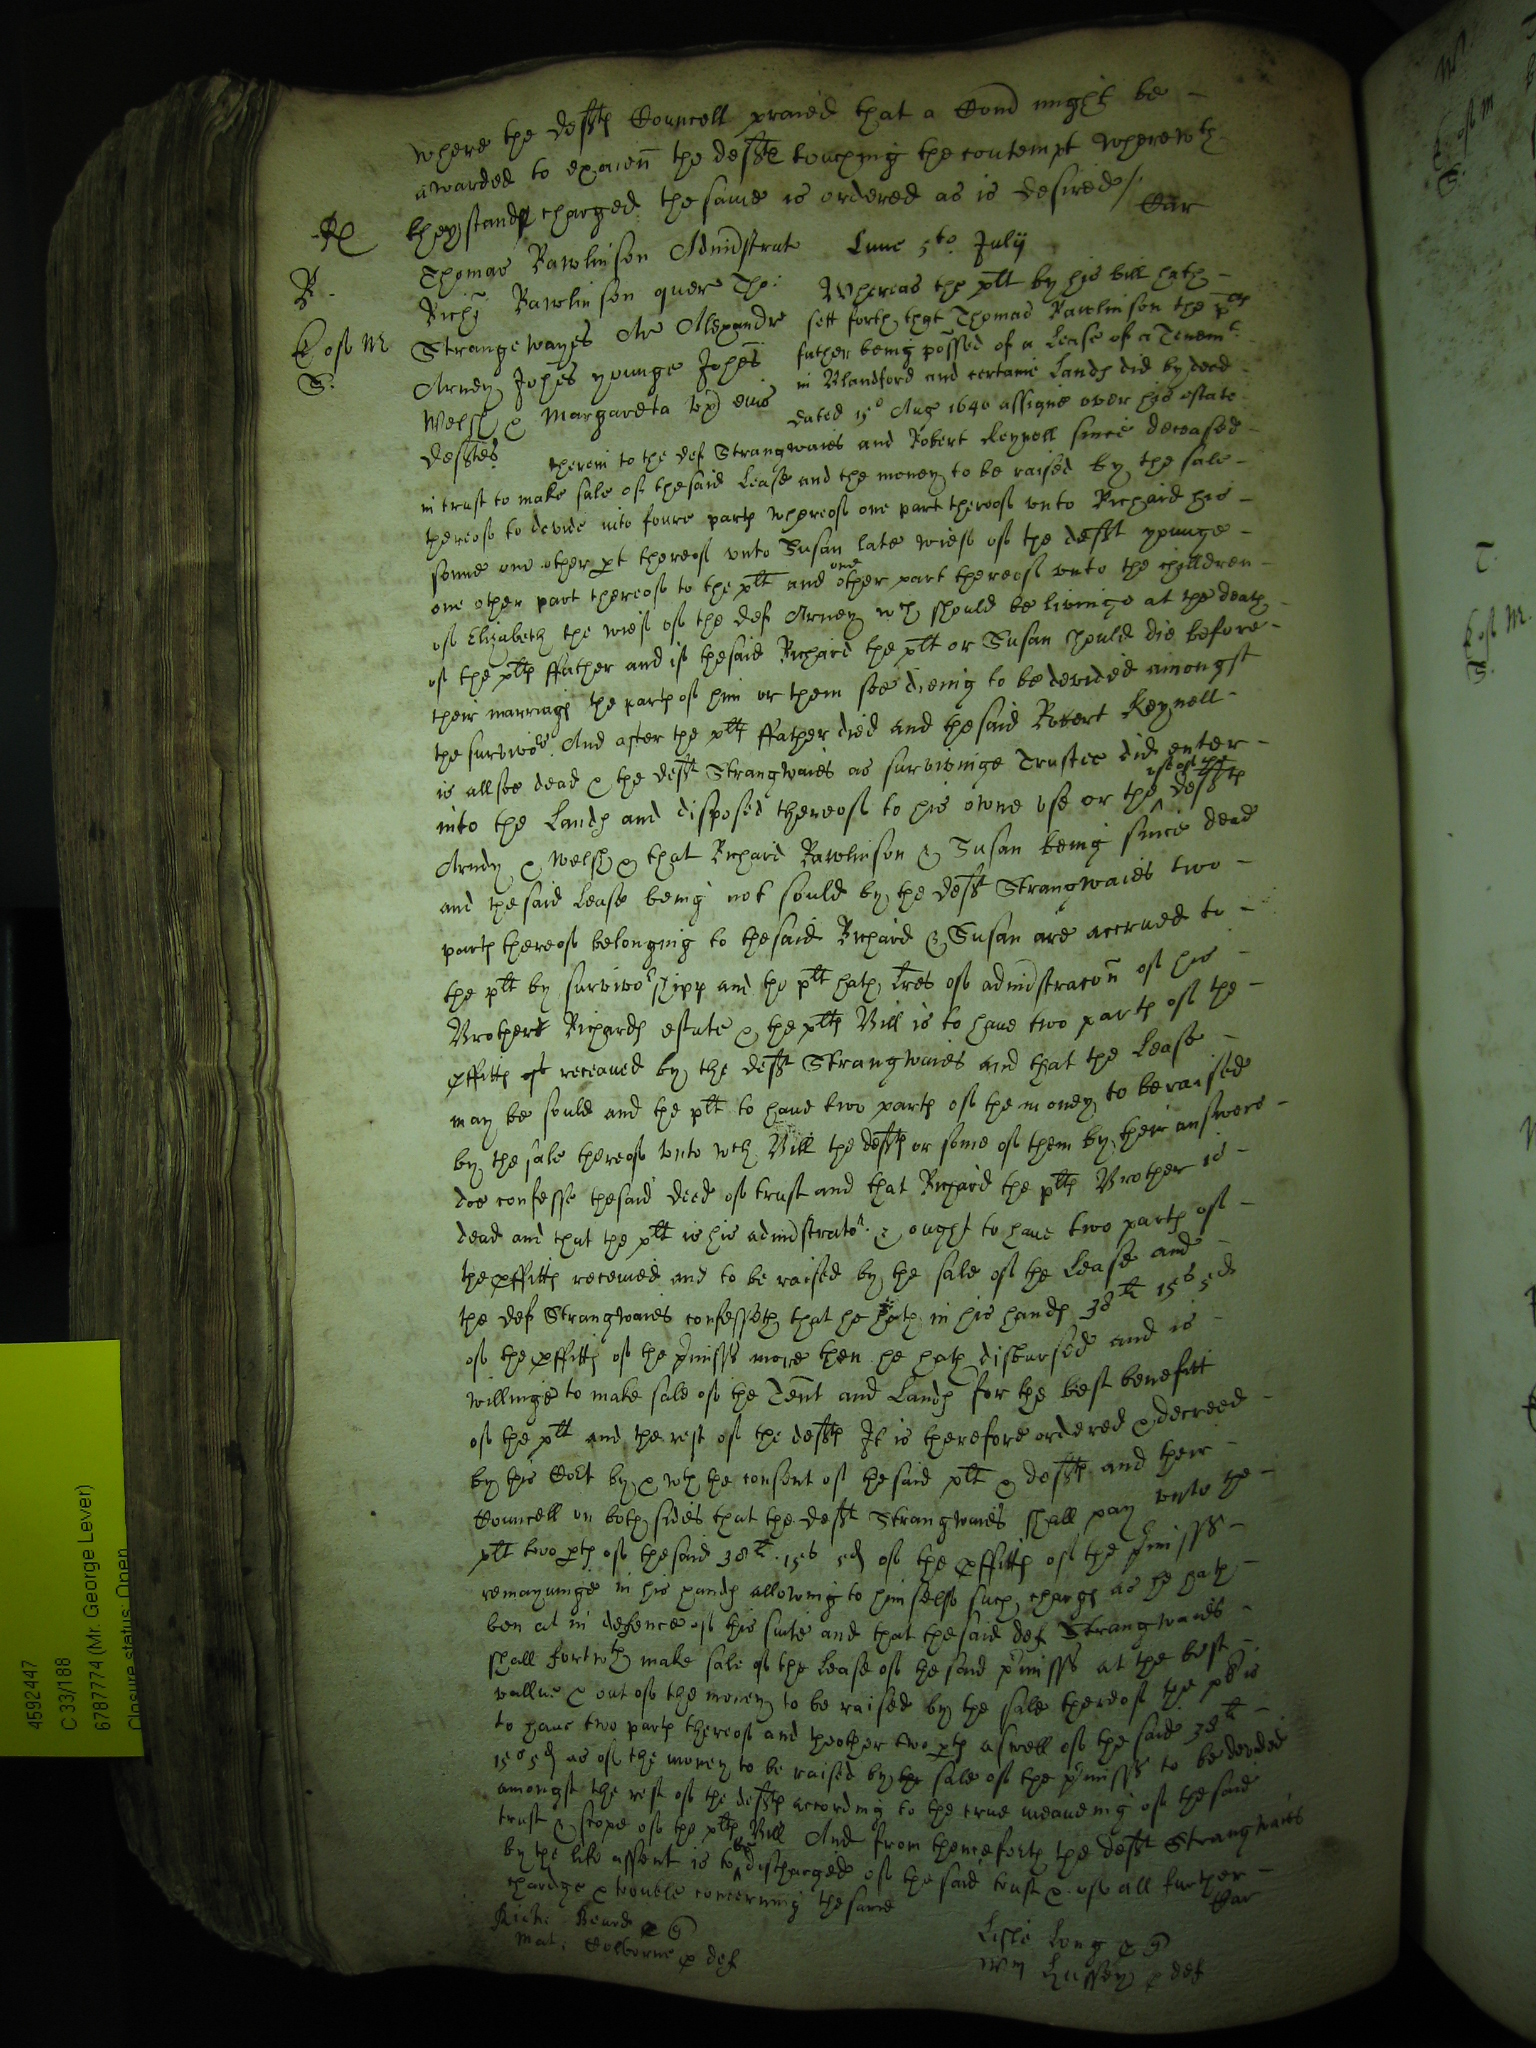 where the deftes Councell praied that a Comd might be
awarded to examen the deftes touching the contempt wherewth
they standes charged the same is ordered as is desired /.
Car
Thomas Rawlinson Administrator
Richi Rawlinson quer Tho:
Strangewayes Ar Alexandre
Arney Johes younge Johes
Welsh & Margareta ux eius
deftes
Lune 5to July
Whereas the plt by his bill hath
sett forth that Thomas Rawlinson the plts
father being possed of a Lease of a Tenemt
in Blandford and certaine Landes did by deed
dated 15o Aug 1640 assigne over his estate
therein to the def Strangwaies and Robert Reynell since deceased
in trust to make sale of the said Lease and the money to be raised by the sale
thereof to devide into foure partes whereof one part thereof unto Richard his
sonne one other pt thereof unto Susan late wief of the deft younge
one other part thereof to the plt and one other part thereof unto the children
of Elizabeth the wief of the def Arney wch should be livinge at the death
of the pltes ffather and if the said Richard the plt or Susan should die before
their marriages the partes of him or them soe dieing to be devided amongst
the survivors And after the plts ffather died and the said Robert Reynell
is allsoe dead & the deft Strangwaies as survivinge Trustee did enter
into the Landes and disposed thereof to his owne use or the use of the deftes
Arney & Welsh & that Richard Rawlinson & Susan being since dead
and the said Lease being not sould by the deft Strangwaies two
partes thereof belonging to the said Richard & Susan are accrued to
the plt by survivorshipp and the plt hath lres of administracon of his
Brothers Richardes estate & the pltes Bill is to have two partes of the
pffittes of receaved by the deft Strangwaies and that the Lease
may be sould and the plt to have two partes of the money to be raised
by the sale thereof unto wch Bill the deftes or some of them by their answere
doe confesse the said deed of trust and that Richard the pltes Brother is
dead and that the plt is his administrator & ought to have two partes of
the pffittes receaved and to be raised by the sale of the Lease and
the def Strangwaies confesseth that he hath in his handes 38li 15s 5d
of the pffittes of the pmisss more then he hath disbursed and is
willinge to make sale of the Tent and Landes for the best benefitt
of the plt and the rest of the deftes It is therefore ordered & decreed
by this Cort by & wth the consent of the said plt & deftes and their
Councell on both sides that the deft Strangwaies shall pay unto the
plt two ptes of the said 38li 15s 5d of the pffittes of the pmisss
remayninge in his handes allowing to himselfe such charges as he hath
ben at in defence of this suite and that the said def Strangwaies
shall forthwth make sale of the Lease of the said pmisss at the best
vallue & out of the money to be raised by the sale thereof the plt is
to have two partes thereof and the other two ptes aswell of the said 38li
15s 5d as of the money to be raised by the sale of the pmisss to be devided
amongst the rest of the deftes according to the true meaneing of the said
trust & scope of the pltes Bill And from henceforth the deft Strangwaies
by the like assent is to be discharged of the said trust & of all further
chardge & trouble concerning the same
Car
Rich: Beard p Q
Mat: Colborne p def
Lisle Long p Q
Wm Hussey p def
4592447
C 33/188
6787774 (Mr. George Lever)
Closure status: Open